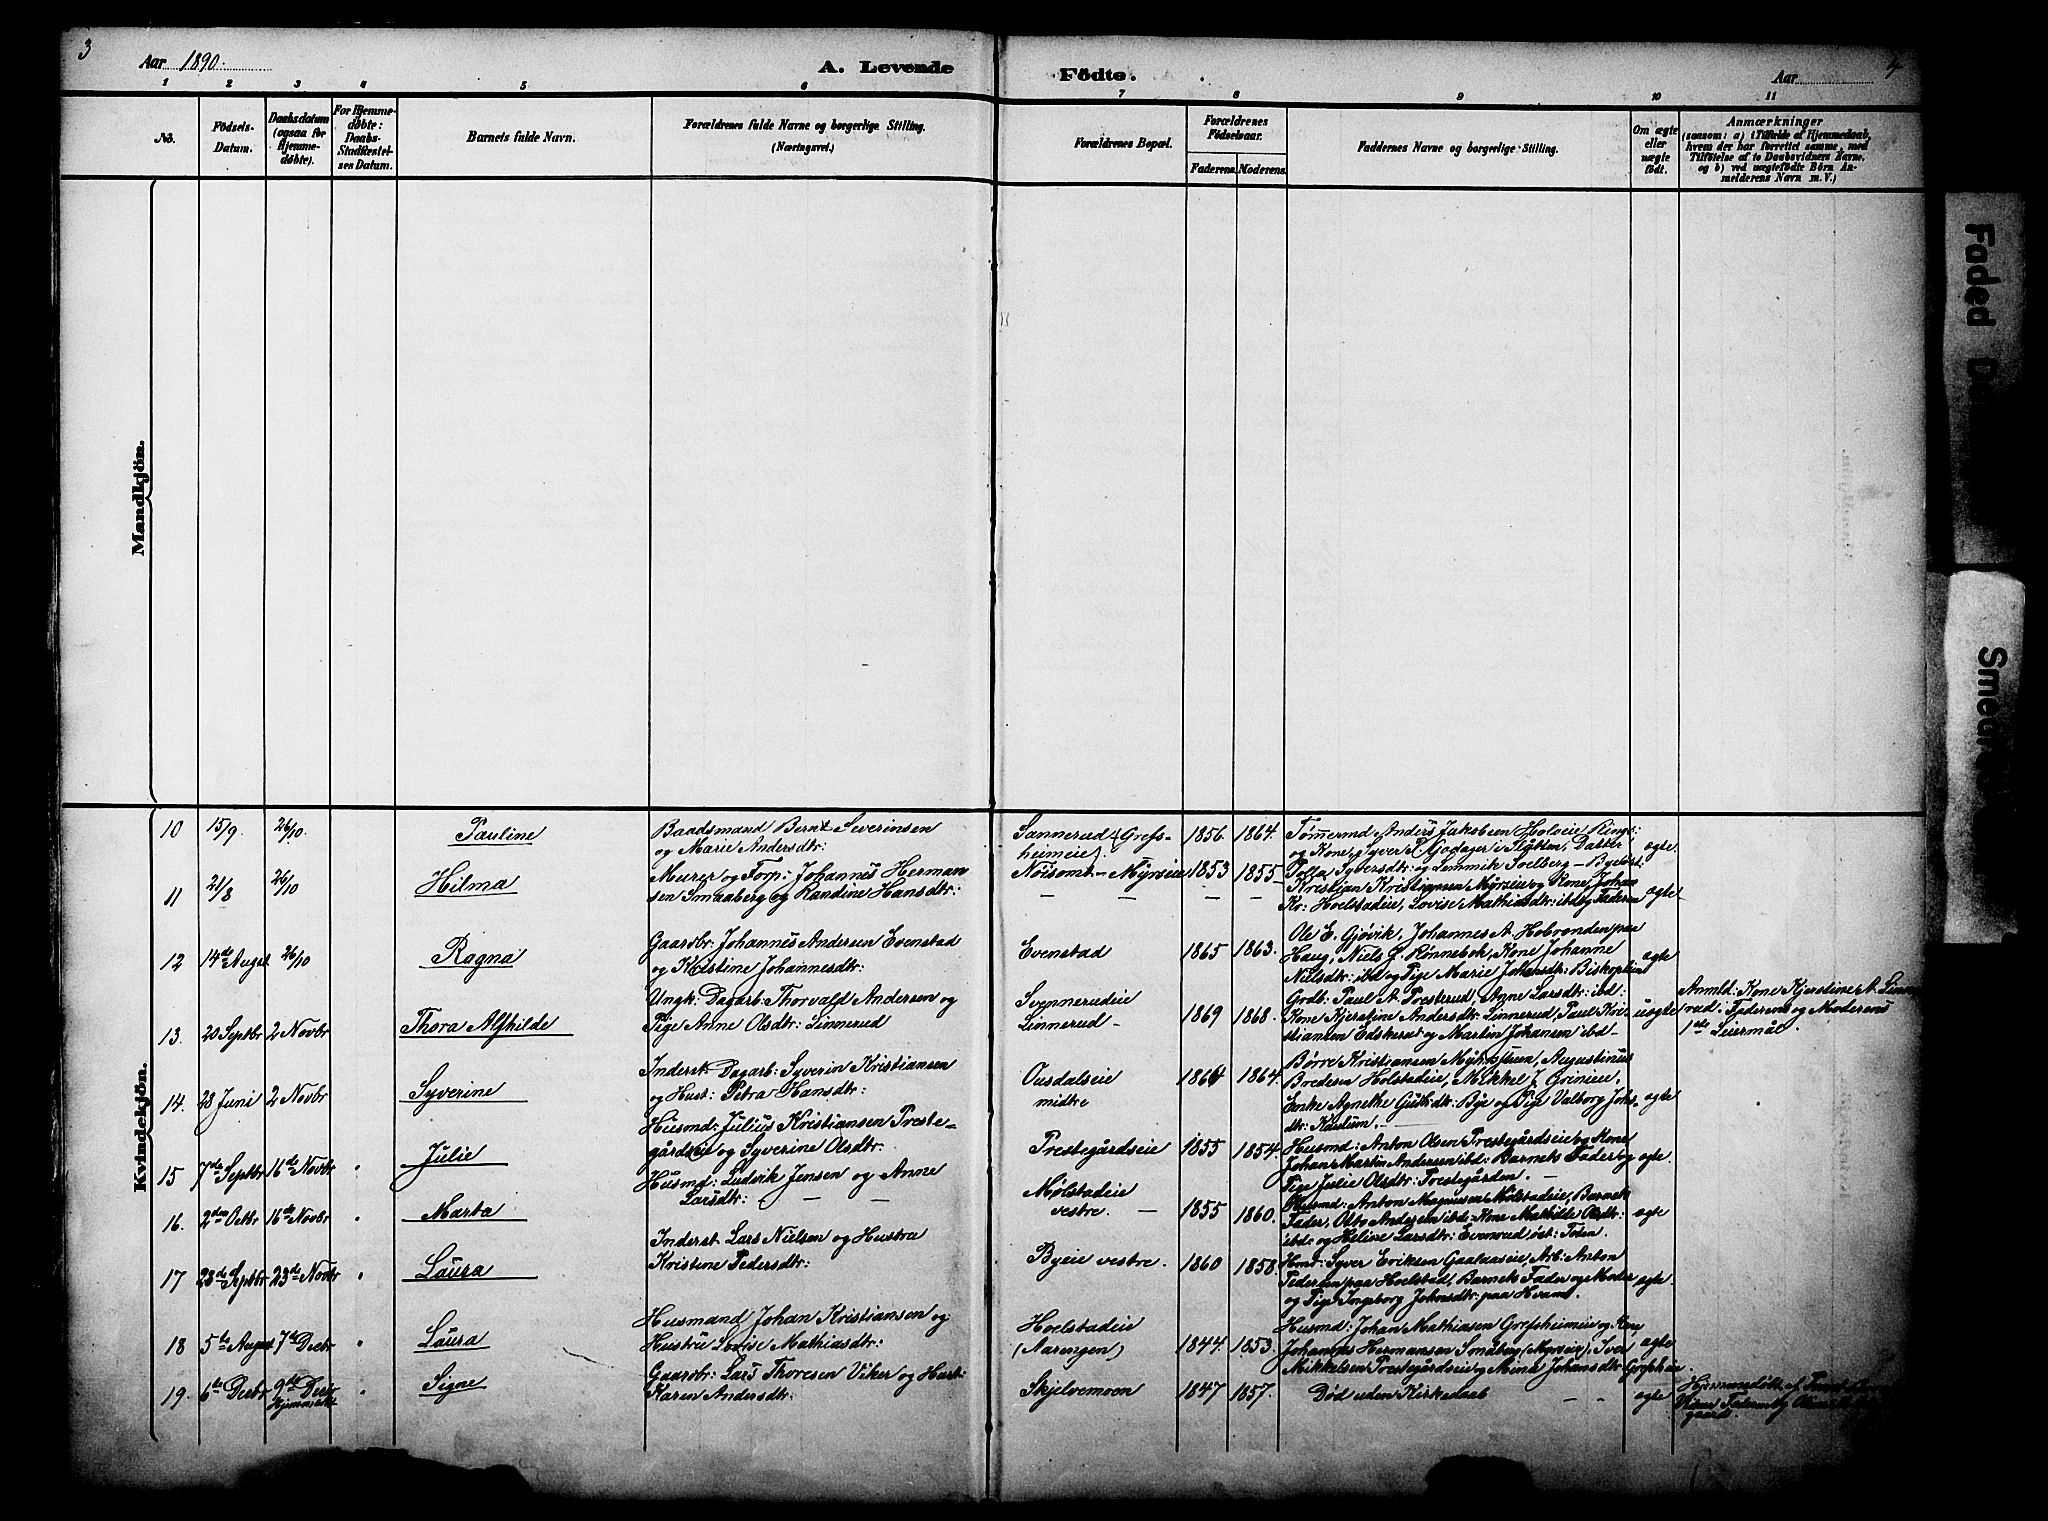 3
Aar 1890.
A. Levende
Födte.
Aar
4
1 2 3 4 5 6 7 8 9 10 11
No.
Födsels-
Datum.
Daabsdatum
(ogsaa for
Hjemme-
døbte).
For Hjemme-
døbte:
Daabs-
Stadfæstel-
ses Datum.
Barnets fulde Navn.
Forældrenes fulde Navne og borgerlige Stilling.
(Næringsvei.)
Forældrenes Bopæl.
Forældrenes
Födselsaar.
Faderens. Moderens.
Faddernes Navne og borgerlige Stilling.
Om ægte
eller
uægte
födt.
Anmærkninger
(saasom: a) i Tilfælde af Hjemmedaab,
hvem der har forrettet samme, med
Tilföielse af to Daabsvidners Navne,
og b) ved uægtefödte Börn An-
melderens Navn m. V.)
Mandkjön.
Kvindekjön.
10 15/9 26/10. Pauline
Baadsmand Bernt Severinsen
og Marie Andersdtr:
Sannerud (Grefs-
heimeie).
1856. 1864.
Tømermd: Anders Jakobsen Holveie Rings:
og Kone, Syver P. Gjødager i Slotten, Datter
ægte.
11 21/8 26/10 Hilma
Murer og Forp: Johannes Herman-
sen Smaaberg og Randine Hansdtr:
Nøisomt - Myrseie
1853 1855
Polla Syversdtr: og Lemmik Soelberg - Byefort.
Kristian Kristiansen Myrseie og Kone, Johan
Kr: Hoelstadeie, Lovise Mathiasdtr: ibd og Faderen
ægte.
12 14de Augst 26/10 Ragna
Gaardbr: Johannes Andersen Evenstad
og Kristine Johannesdtr:
Evenstad
1865 1863.
Ole E. Gjøvik, Johannes A. Hobronden paa
Haug, Niels J. Rønnebek, Kone Johanne
Nielsdtr: ibd og Pige Marie Johansdtr: Biskoplien
ægte
13. 20 Septbr 2 Novbr Thora Alfhilde
Ungk: Dagarb: Thorvald Andersen og
Pige Anne Olsdtr: Linnerud
Svennerudeie
Linnerud -
1869 1868.
Grdb: Paul A. Presterud, Anne Larsdtr: ibd:
Kone Kjerstine Andersdtr: Linnerud, Paul Kris-
stiansen Edskerud og Martin Johansen ibd -
uægte
Anmld: Kone Kjerstine A. Linne
rud: Faderens og Moderens
1ste Leiermål.
14. 28 Juni 2 Novbr Syverine
Inderst Dagarb: Syverin Kristiansen
og Hust: Petra Hansdtr:
Ousdalseie
midtre
1864 1864.
Børre Kristiansen Myhrstuen, Augustinus
Bredesen Holstadeie, Mikkel J. Grinieie.
Enke Agnethe Gulbdtr: Bye og Pige Valborg Johs-
dtr: Kaulum. -
ægte
15 7de Septbr 16de Novbr " Julie
Husmd: Julius Kristiansen Preste-
gårdseie og Syverine Olsdtr:
Prestegårdseie
1855 1854.
Husmd: Anton Olsen Prestegårdseie og Kone
Johan Martin Andersen ibd: Barnets Fader og
Pige Julie Olsdtr: Prestegården. -
ægte.
16. 2den Octbr 16de Novbr " Marta
Husmd: Ludvik Jensen og Anne
Larsdtr: - -
Mølstadeie
vestre. -
1855 1860.
Husmd: Anton Magnusen Mølstadeie, Barnets
Fader, Otto Andersen ibd: Kone Mathilde Olsdtr:
ibd: og Heline Larsdtr: Evenrud, øst: Toten.
ægte
17 28de Septbr 23de Novbr " Laura
Inderst Lars Nielsen og Hustru
Kristine Pedersdtr:
Byeie vestre.
1860 1858.
Hmd: Syver Eriksen Gaalaaseie, Arb: Anton
Pedersen paa Hoelstad, Barnets Fader og Moder
og Pige Ingeborg Johnsdtr: paa Hvam.
ægte
18 5te Augst 7de Decbr " Laura
Husmand Johan Kristiansen og
Hustru Lovise Mathiasdtr:
Hoelstadeie
(Aarengen)
1844. 1853.
Husmd: Johan Mathiasen Grefsheimeie og Kone
Johannes Hermansen Småberg (Myrseie), Iver
Mikkelsen Prestegårdseie og Mina Johansdtr: Grefsheim.
ægte
19. 6te Decbr 9de Decbr
Hjemmedbt " Signe
Gaardbr: Lars Thoresen Viker og Hust:
Karen Andersdtr:
Skjelvemoen
1847 1857.
Død uden Kirkedaab - -
ægte
Hjemmedøbt af
gaard.
Faded
Smea